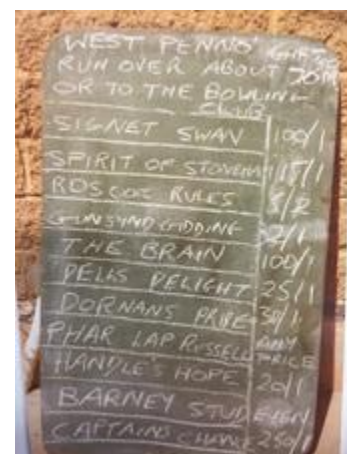 WEST PENNO GIFT
RUN OVER ABOUT 70M
OR TO THE BOWLING
CLUB
SIGNET SWAN 100/1
SPIRIT OF 15/1
ROSCOE RULES 5/2
GUNSYND GIDDING /1
THE BRAIN 100/1
PELLS DELIGHT 25/1
DORNANS PRIDE /1
PHAR LAP RUSSELL ANY PRICE
HANDLE'S HOPE 20/1
BARNEY STUD EVEN
CAPTAINS CHANCE 250/1